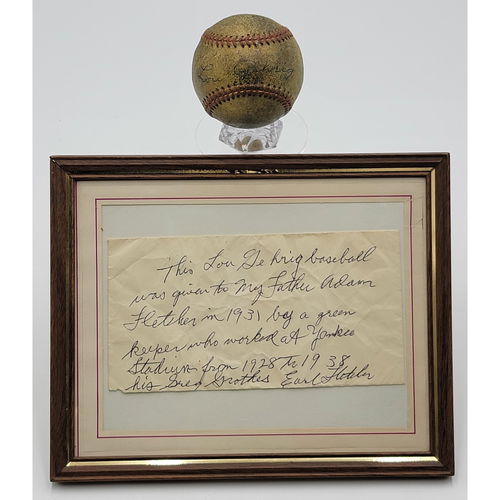 Lou Gehrig
This Lou Gehrig baseball
was given to My Father Adam
Fletcher in 1931 by a green
keeper who worked at Yankee
Stadium from 1928 To 1938
his Greg Earl Fletcher